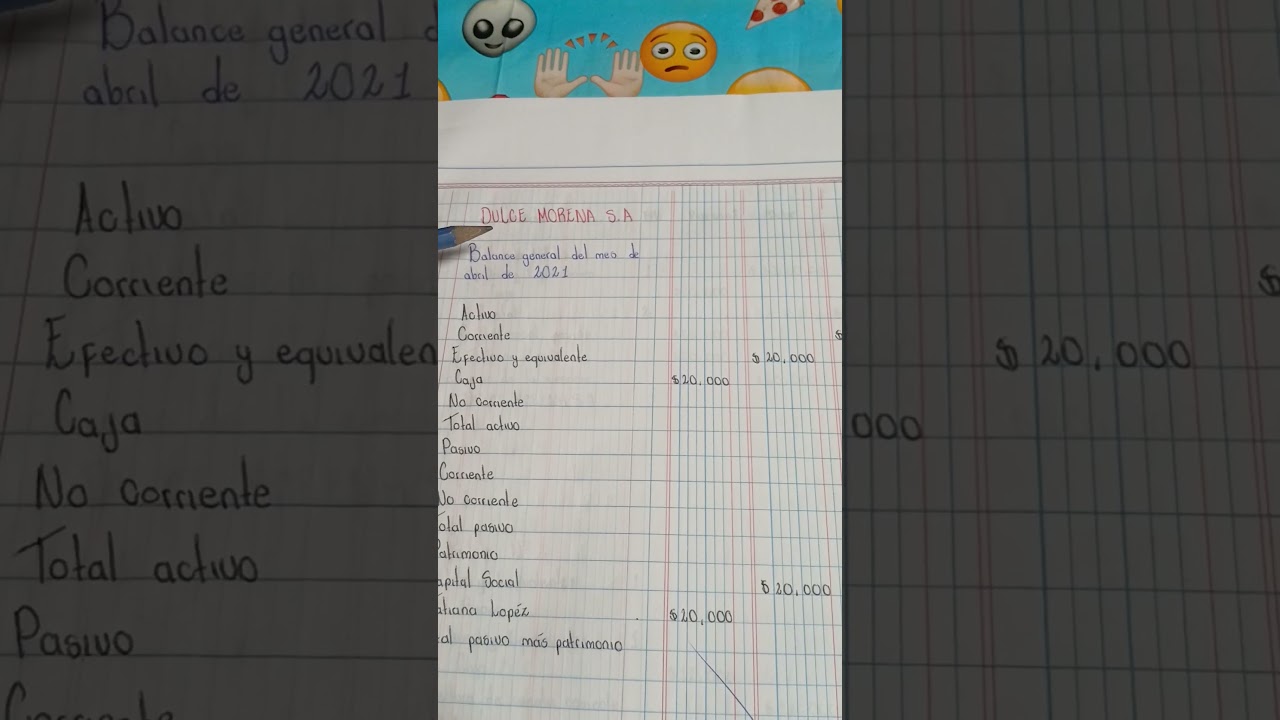 DULCE MORENA S.A
Balance general del mes de
abril de 2021
Activo
Corriente $
Efectivo y equivalente $20,000
Caja $20,000
No corriente
Total activo
Pasivo
Corriente
No corriente
Total pasivo
Patrimonio
apital Social $20,000
atiana Lopéz $20,000
al pasivo más patrimonio